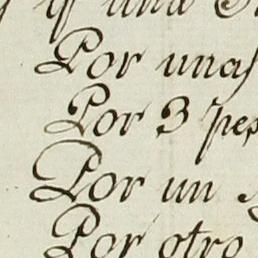 una
Por unas
Por 3 pes
Por un
Por otro